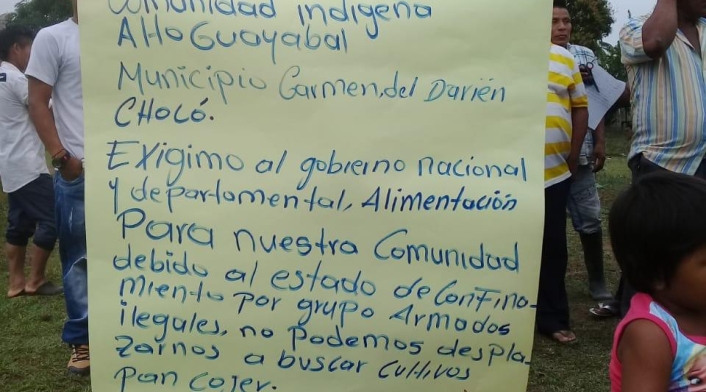 Comunidad indigena
Alto Guayabal
Municipio Carmen, del Darién
CHOCó.
Exigimo al gobierno nacional
y departamental, Alimentación
Para nuestra Comunidad
debido al estado de Confina-
miento por grupo Armados
ilegales, no Podemos despla-
zarnos a buscar Cultivos
pan cojer.